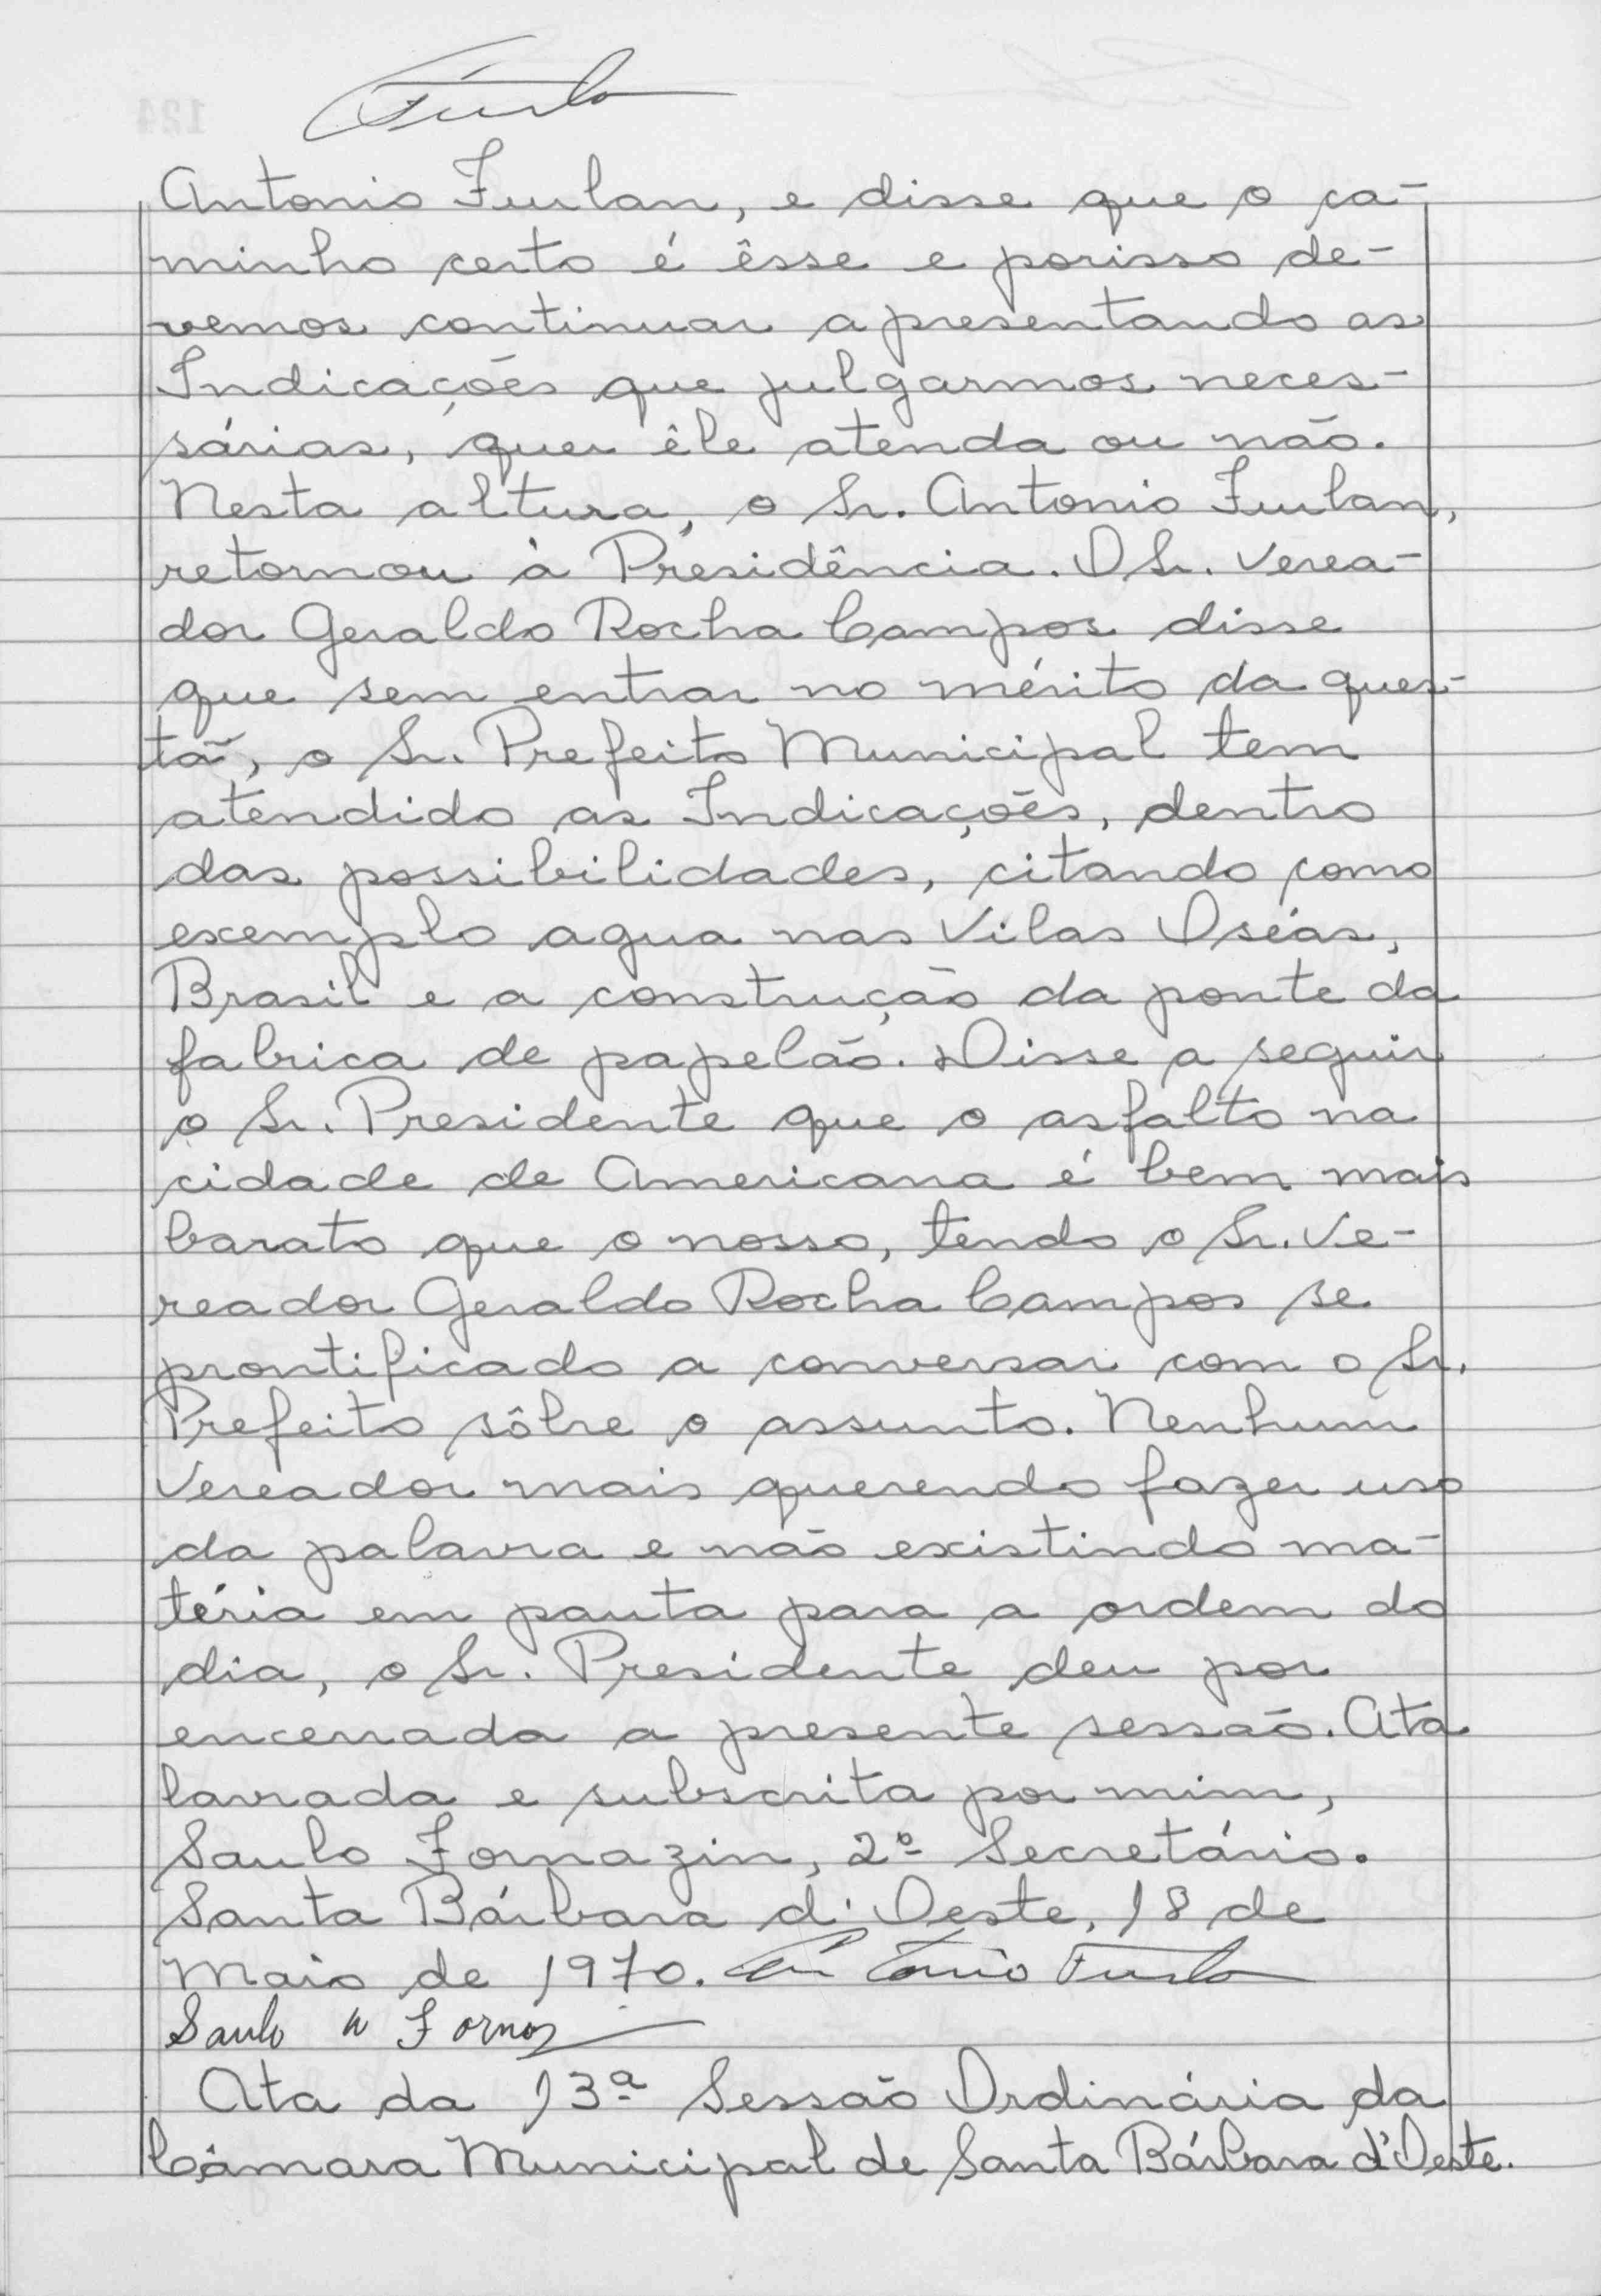 Furla
Antonio Furlan, e disse que o ca-
minho certo é êsse e porisso de-
vemos continuar apresentando as
Indicações que julgarmos neces-
sárias, quer êle atenda ou não.
Nesta altura, o Sr. Antonio Furlan,
retornou à Presidência. O Sr. Verea-
dor Geraldo Rocha Campos disse
que sem entrar no mérito da ques-
tã, o Sr. Prefeito Municipal tem
atendido as Indicações, dentro
das possibilidades, citando como
exemplo agua nas Vilas Oséas,
Brasil e a construção da ponte da
fabrica de papelão. Disse a seguir
o Sr. Presidente que o asfalto na
cidade de Americana é bem mais
barato que o nosso, tendo o Sr. Ve-
reador Geraldo Rocha Campos se
prontificado a conversar com o Sr.
Prefeito sôbre o assunto. Nenhum
Vereador mais querendo fazer uso
da palavra e não existindo ma-
téria em pauta para a ordem do
dia, o Sr. Presidente deu por
encerrada a presente sessão. Ata
lavrada e subscrita por mim,
Saulo Fornazin, 2º Secretário.
Santa Bárbara d'Oeste, 18 de
Maio de 1970. Antonio Furla
Saulo Fornaz
Ata da 13ª Sessão Ordinária da
Câmara Municipal de Santa Bárbara d'Oeste.